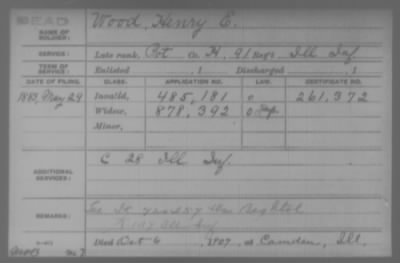 DEAD
NAME OF SOLDIER: Wood, Henry E.
SERVICE: Late rank, Pvt Co. H, 91 Reg't Ill Inf.
TERM OF SERVICE: Enlisted , 1 Discharged , 1
DATE OF FILING. CLASS. APPLICATION NO. LAW. CERTIFICATE NO.
1883, May 29 Invalid, 485,181 o 261,372
Widow, 878,392 o
Minor,
ADDITIONAL SERVICES: C 28 Ill Inf.
REMARKS:
Died Oct 6, 1907, at Camden, Ill.